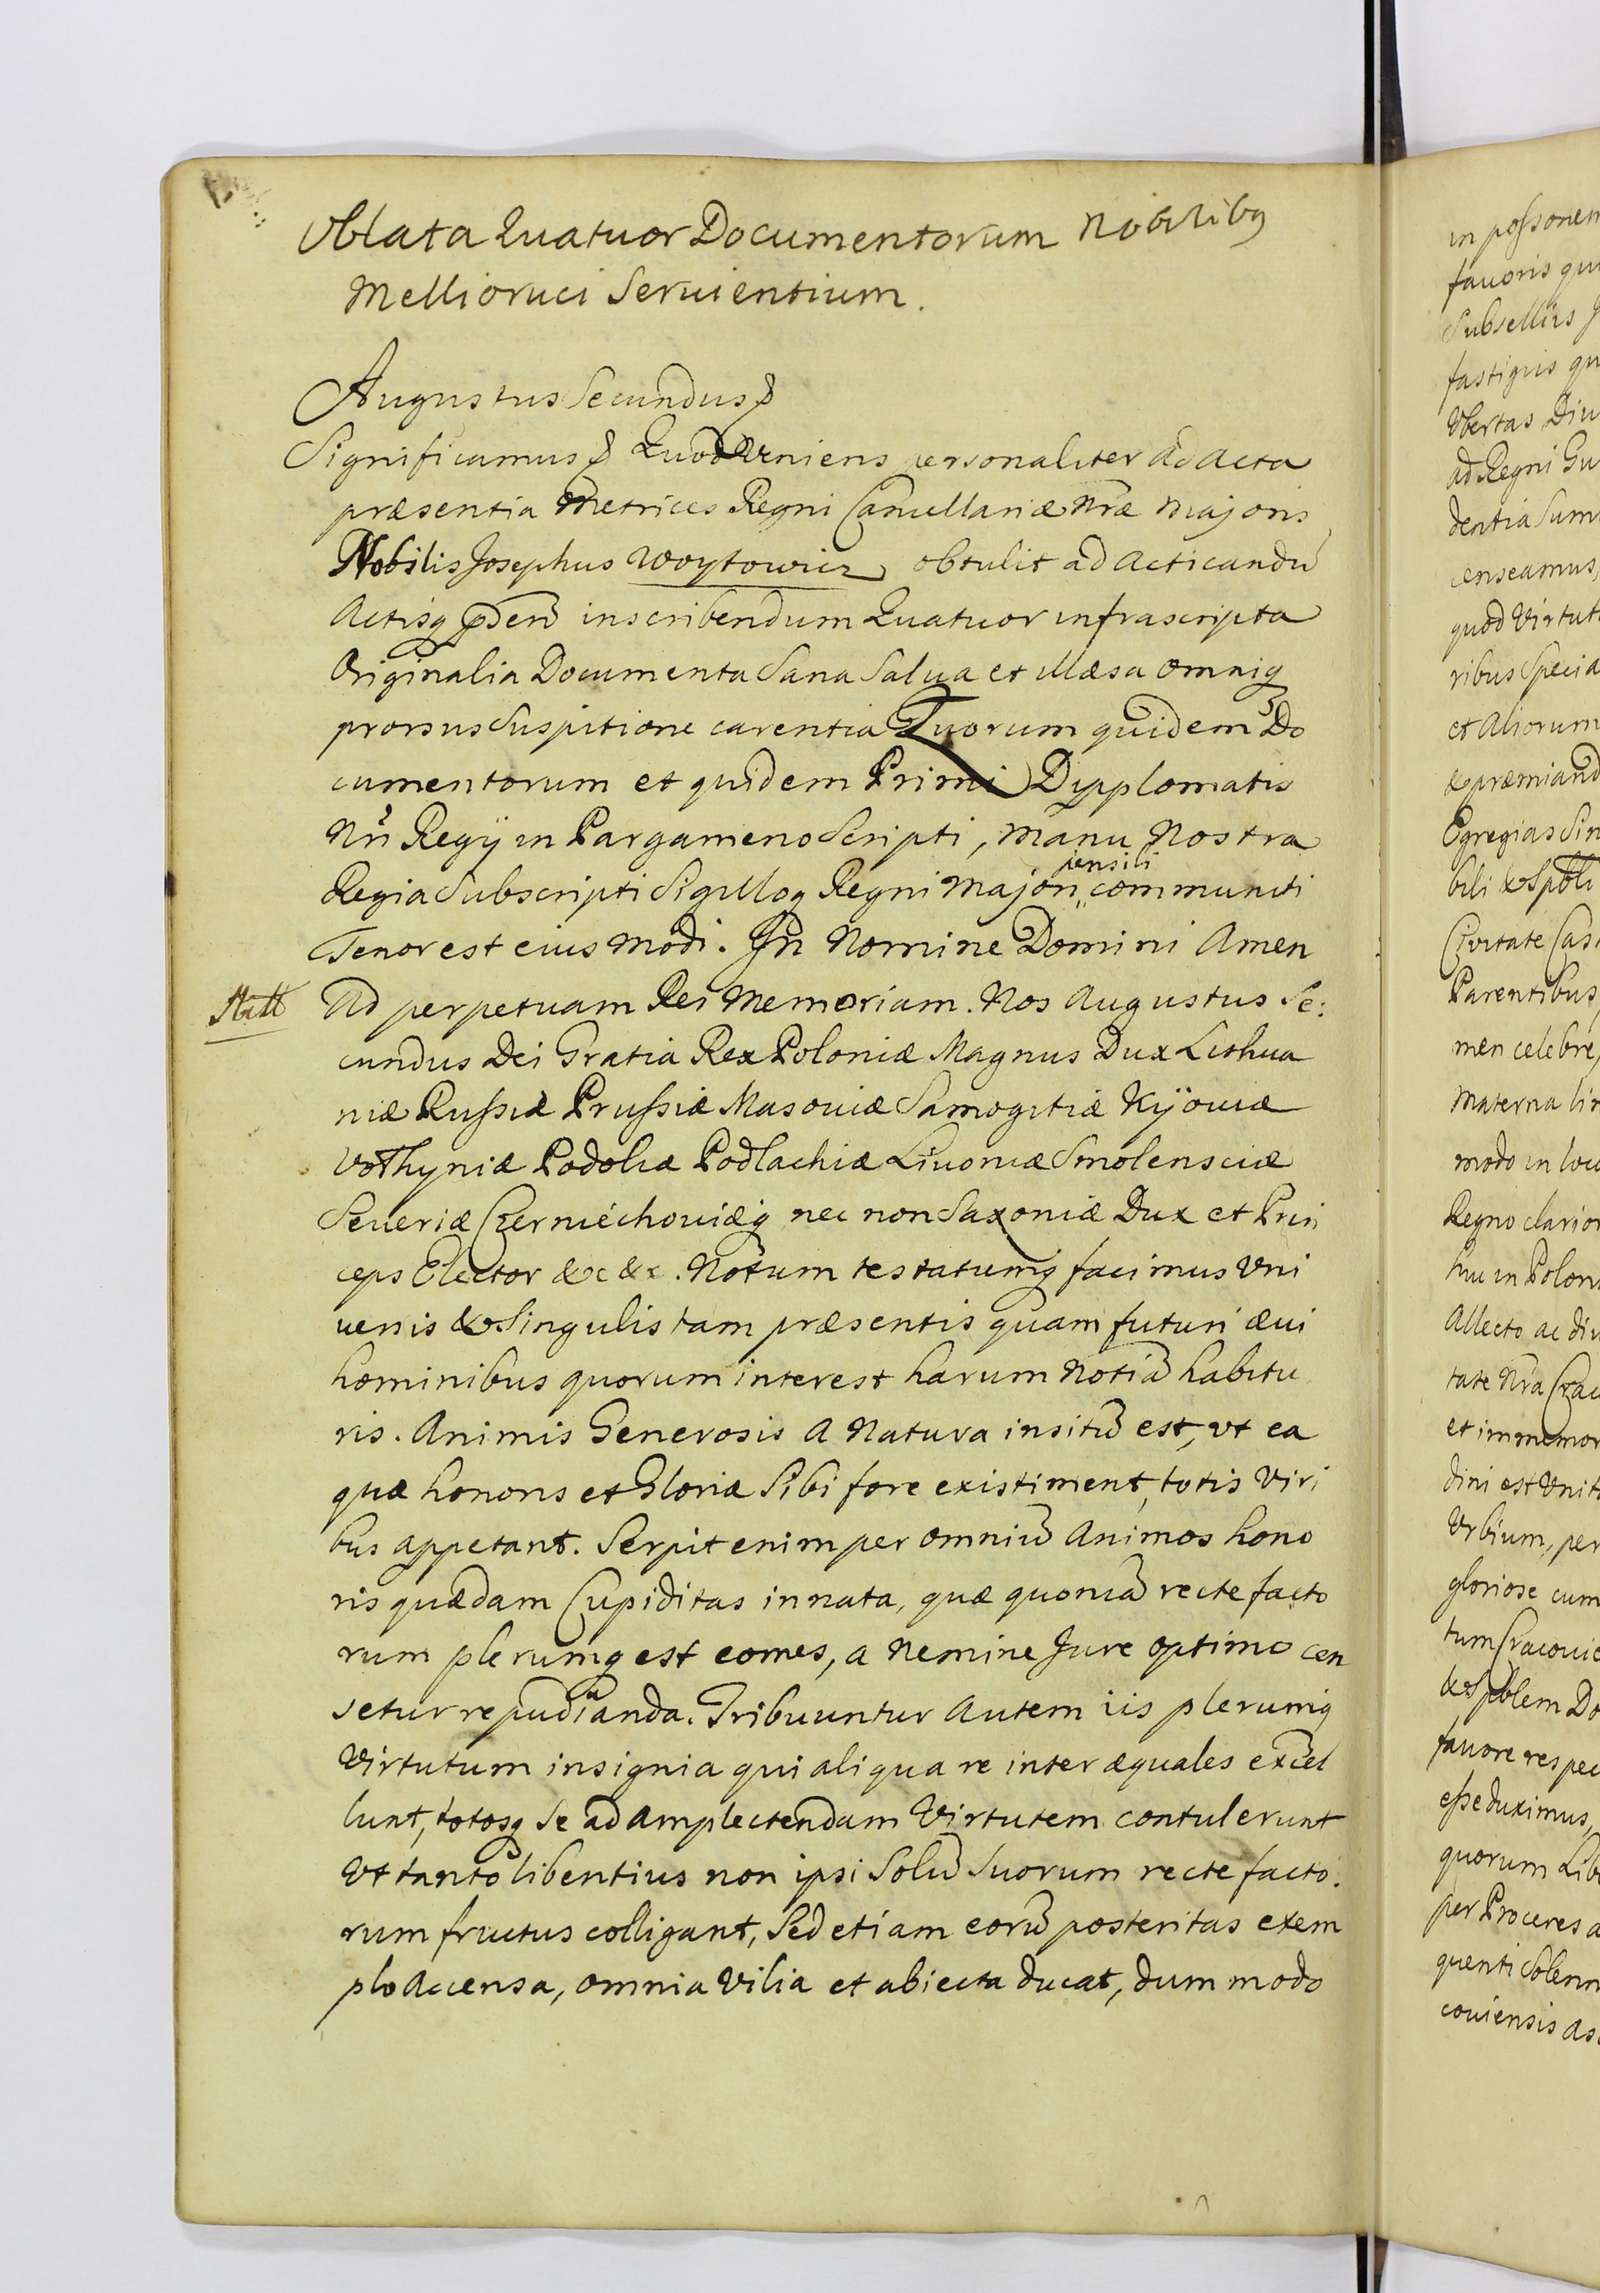 Oblata Quatuor Documentorum Nobilibq
Mellioruci Seruientium.
Augustus Secundus
Significamus Quod veniens personaliter ad Acta
præsentia Metrices Regni Cancellariæ Nræ Majoris
Nobilis Josephus Woytowicz obtulit ad Acticandū
Actisq inscribendum Quatuor infrascripta
Originalia Documenta Sana Salua et illæsa omniq
prorsus Suspitione carentia Quorum quidem Do
cumentorum et quidem Primi Dypplomatis
Nri Regÿ in Pargameno Scripti, Manu Nostra
Regia Subscripti Sigilloq Regni Majori pensili communiti
Tenor est eius modi. In Nomine Domini Amen
Ad perpetuam Rei Memoriam. Nos Augustus Se:
cundus Dei Gratia Rex Poloniæ Magnus Dux Lithua
niæ Russiæ Prussiæ Masouiæ Samogitiæ Kÿouiæ
Volhyniæ Podoliæ Podlachiæ Liuoniæ Smolensciæ
Seueriæ Czerniechouiæq nec non Saxoniæ Dux et Prin
ceps Elector &c &c. Notum testatumq facimus Vni
uersis & Singulis tam præsentis quam futuri æui
hominibus quorum interest harum Notiā habitu
ris. Animis Generosis a Natura insitū est, vt ea
quæ honoris et Gloriæ Sibi fore existiment, totis Viri
bus appetant. Serpit enim per omniū Animos hono
ris quædam Cupiditas innata, quæ quoniā recte facto
rum plerumq est comes, a Nemine Jure optimo cen
setur repudianda. Tribuuntur Autem iis plerumq
Virtutum insignia qui aliqua re inter æquales excel
lunt, totosq se ad amplectendam Virtutem contulerunt
Vt tanto libentius non ipsi Solū Suorum recte facto:
rum fructus colligant, Sed etiam eorū posteritas exem
plo Accensa, omnia Vilia et abiecta ducat, dum modo
in possonem
fauoris
Subsellÿs
fastigiis
Vbertas
ad Regni
dentia
censeamus,
quod
ribus
et Aliorum
& præmiand
Egregias
bili &
Ciuitate
Parentibus,
men celebre,
Materna
modo in
Regno
huc in
Allecto ac
tate Nra
et
dini est
Vrbium, per
gloriose cum
tum
Do
fauore
esse duximus,
quorum
per Proceres a
quenti
couiensis